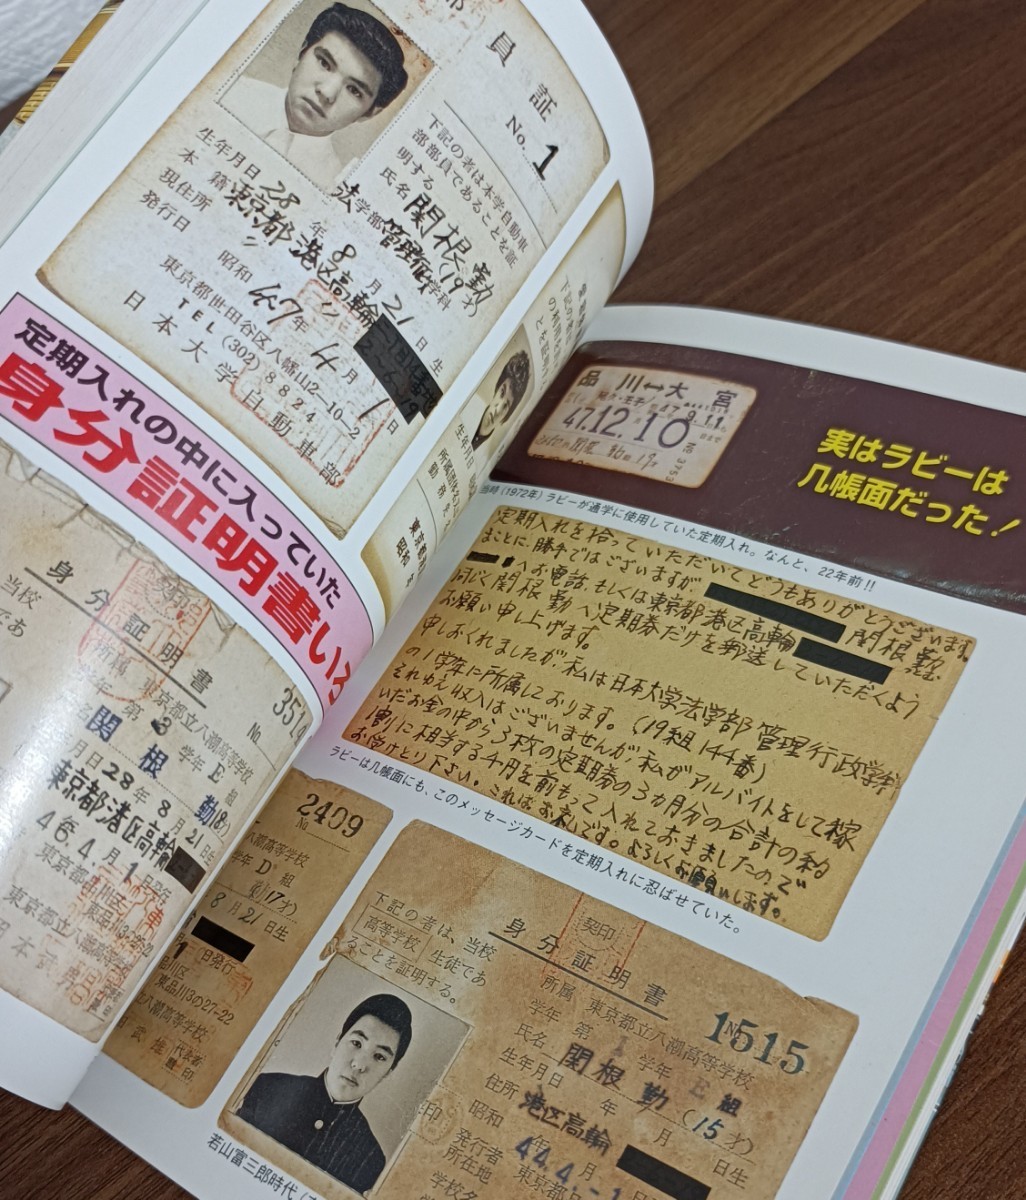 員証
No. 1
下記の者は本学自動車
部部員であることを証
明する
氏名 関根 勤
(19才)
法学部管理行政学科
生年月日 28年8月21日生
本籍 東京都港区高輪
現住所 〃 〃
発行日 昭和47年4月1日
東京都世田谷区八幡山2-10-2
TEL (302) 8824
日本大学自動車部
定期入れの中に入っていた
身分証明書いろ
身分証明書
当校
であ
No 3514
所属 東京都立八潮高等学校
学年 第3学年E組
関根 勤(18才)
月日 28年8月21日生
東京都港区高輪
46.4.1日発行
東京都
品川区
東品川3-27-22
東京都立八潮高等学校
No 2409
八潮高等学校
学年D組
(17才)
8月21日生
1日発行
品川区
東品川3の27-22
立八潮高等学校
下記の者
生年月日
勤務
東京都
昭和
品川↔大宮
47.12.10
実はラビーは
几帳面だった!
当時(1972年)ラビーが通学に使用していた定期入れ。なんと、22年前!!
定期入れを拾っていただいてどうもありがとうございます。
まことに勝手ではございますが 関根勤
へお電話もしくは東京都港区高輪
同じく関根勤へ定期券だけを郵送していただくよう
お願い申し上げます。
申しおくれましたが、私は日本大学法学部管理行政学科
の1学年に所属しております。(19組144番)
それゆえ収入はございませんが、私がアルバイトをして稼
いだお金の中から3枚の定期券の3ヵ月分の合計の約
1割に相当する千円を前もって入れておきましたので
お受けとり下さい。これはお礼です。よろしくお願いします。
ラビーは几帳面にも、このメッセージカードを定期入れに忍ばせていた。
身分証明書
契印
下記の者は、当校
高等学校 生徒であ
ることを証明する。
No 1515
所属 東京都立八潮高等学校
学年 第1学年E組
氏名 関根 勤(15才)
生年月日 年 月 日生
住所 港区高輪
昭和44年4月-1
発行者
所在地 東京都
学校名
印
若山富三郎時代